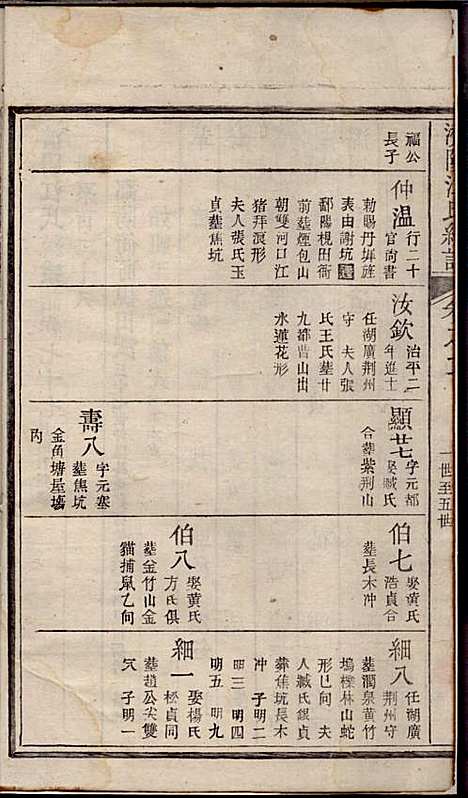 濟陽江氏統譜
一世至五世
福公
長子
仲温
行二十
官尚書
勅賜丹墀旌
表由謝坑
鄱陽梘田街
前葬煙包山
朝雙河口江
猪拜浪形
夫人張氏玉
貞葬焦坑
汝欽
治平二
年進士
任湖廣荆州
守　夫人張
氏王氏葬廿
九都曹山出
水蓮花形
顯廿七
字元都
娶臧氏
合葬紫荆山
壽八
字元塞
葬焦坑
金角塘屋塲
內
伯七
娶黄氏
浩貞合
葬長木冲
伯八
娶黄氏
方氏俱
葬金竹山金
貓捕鼠乙向
細八
任湖廣
荆州守
葬潤泉黄竹
塢樑林山蛇
形巳向　夫
人臧氏銀貞
葬焦坑長木
冲　子明二
明三　明四
明五　明九
細一
娶楊氏
松貞同
葬趙公尖雙
穴　子明一